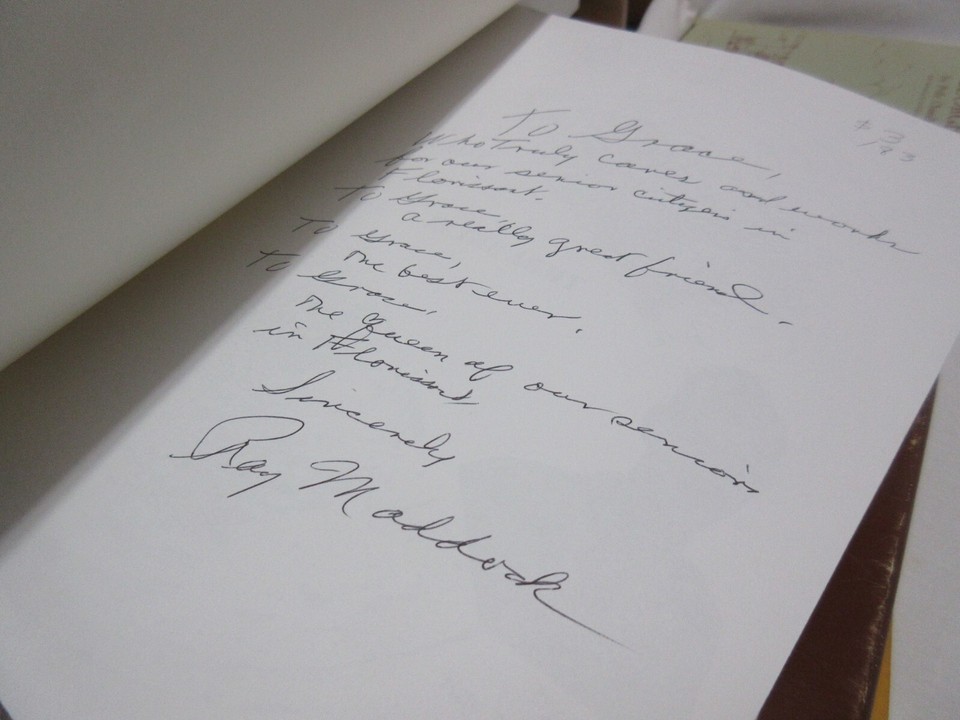 To Grace,
Who Truly cares and works
for our senior citizen in
Florissant.
To Grace,
a really great friend.
To Grace,
The best ever.
To Grace,
The Queen of our seniors
in Florissant,
Sincerely
Ray Maddock